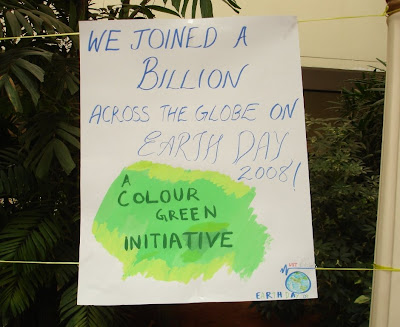 WE JOINED A
BILLION
ACROSS THE GLOBE ON
EARTH DAY
2008!
A
COLOUR
GREEN
INITIATIVE
EARTH DAY